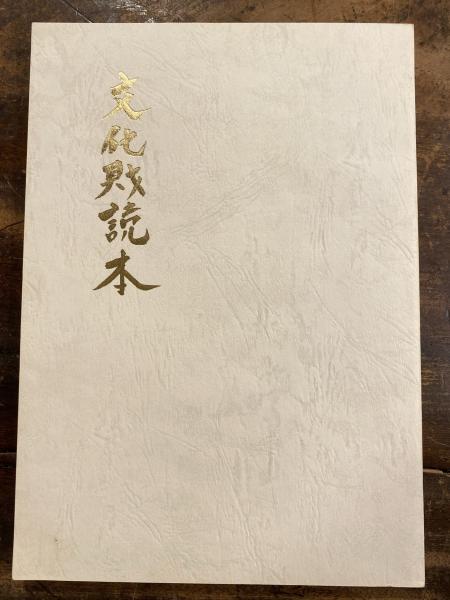 文化財読本